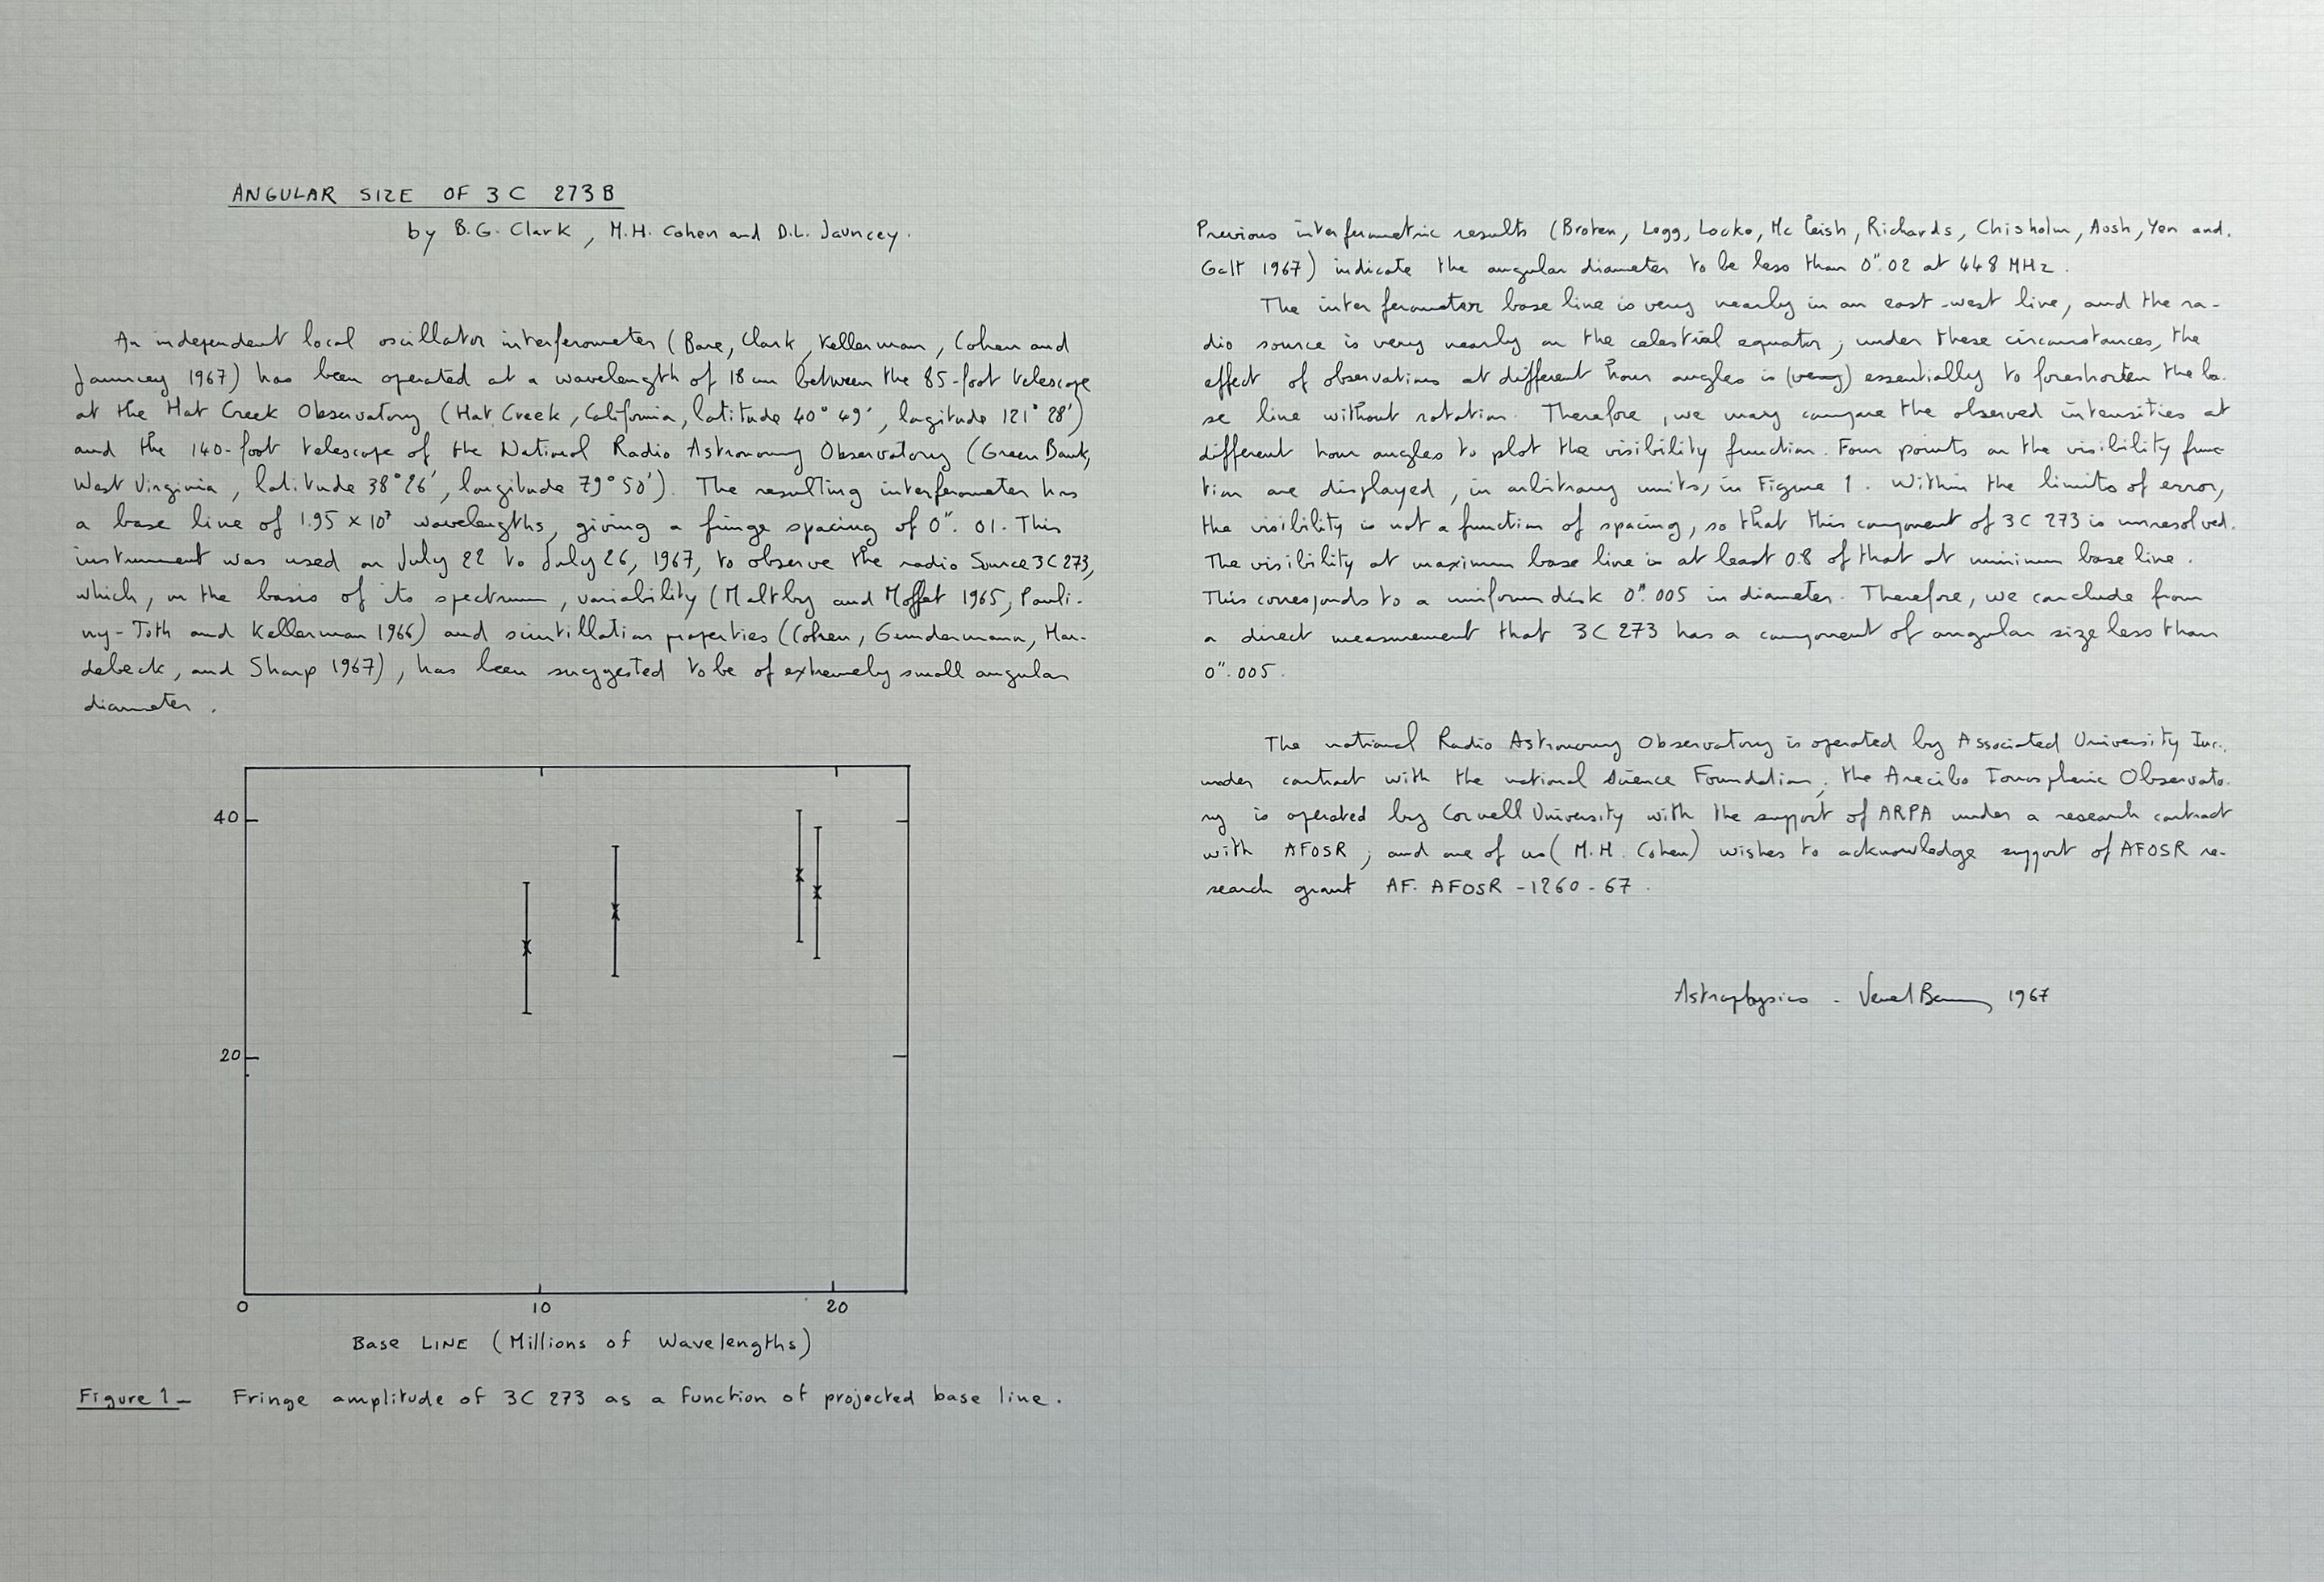 ANGULAR SIZE OF 3C 273B
by B.G. Clark, M.H. Cohen and D.L. Jauncey.
An independent local oscillator interferometer (Bare, Clark, Kellerman, Cohen and
Jauncey 1967) has been operated at a wavelength of 18 cm between the 85-foot telescope
at the Hat Creek Observatory (Hat Creek, California, latitude 40° 49', logitude 121° 28')
and the 140-foot telescope of the National Radio Astronomy Observatory (Green Bank,
West Virginia, latitude 38° 26', longitude 79° 50'). The resulting interferometer has
a base line of 1.95 × 10⁷ wavelengths, giving a fringe spacing of 0". 01. This
instrument was used on July 22 to July 26, 1967, to observe the radio Source 3C 273,
which, on the basis of its spectrum, variability (Maltby and Moffet 1965, Pauli-
ny-Toth and Kellerman 1966) and scintillation properties (Cohen, Gundermann, Har-
debeck, and Sharp 1967), has been suggested to be of extremely small angular
diameter.
40
20
0 10 20
Base LINE (Millions of Wavelengths)
Figure 1 - Fringe amplitude of 3C 273 as a function of projected base line.
Previous interferometric results (Broten, Legg, Locke, Mc Leish, Richards, Chisholm, Aush, Yen and.
Galt 1967) indicate the angular diameter to be less than 0".02 at 448 MHz.
The interferometer base line is very nearly in an east-west line, and the ra-
dio source is very nearly on the celestial equator; under these circumstances, the
effect of observations at different hour angles is (very) essentially to foreshorten the ba-
se line without rotation. Therefore, we may compare the observed intensities at
different hour angles to plot the visibility function. Four points on the visibility func
tion are displayed, in arbitrary units, in Figure 1. Within the limits of error,
the visibility is not a function of spacing, so that this component of 3C 273 is unresolved.
The visibility at maximum base line is at least 0.8 of that at minimum base line.
This corresponds to a uniform disk 0".005 in diameter. Therefore, we conclude from
a direct measurement that 3C 273 has a component of angular size less than
0".005.
The national Radio Astronomy Observatory is operated by Associated University Inc.
under contract with the national Science Foundation; the Arecibo Ionospheric Observato.
ry is operated by Cornell University with the support of ARPA under a research contract
with AFOSR; and one of us (M.H. Cohen) wishes to acknowledge support of AFOSR re-
search grant AF. AFOSR - 1260 - 67.
Astrophysics - 1967